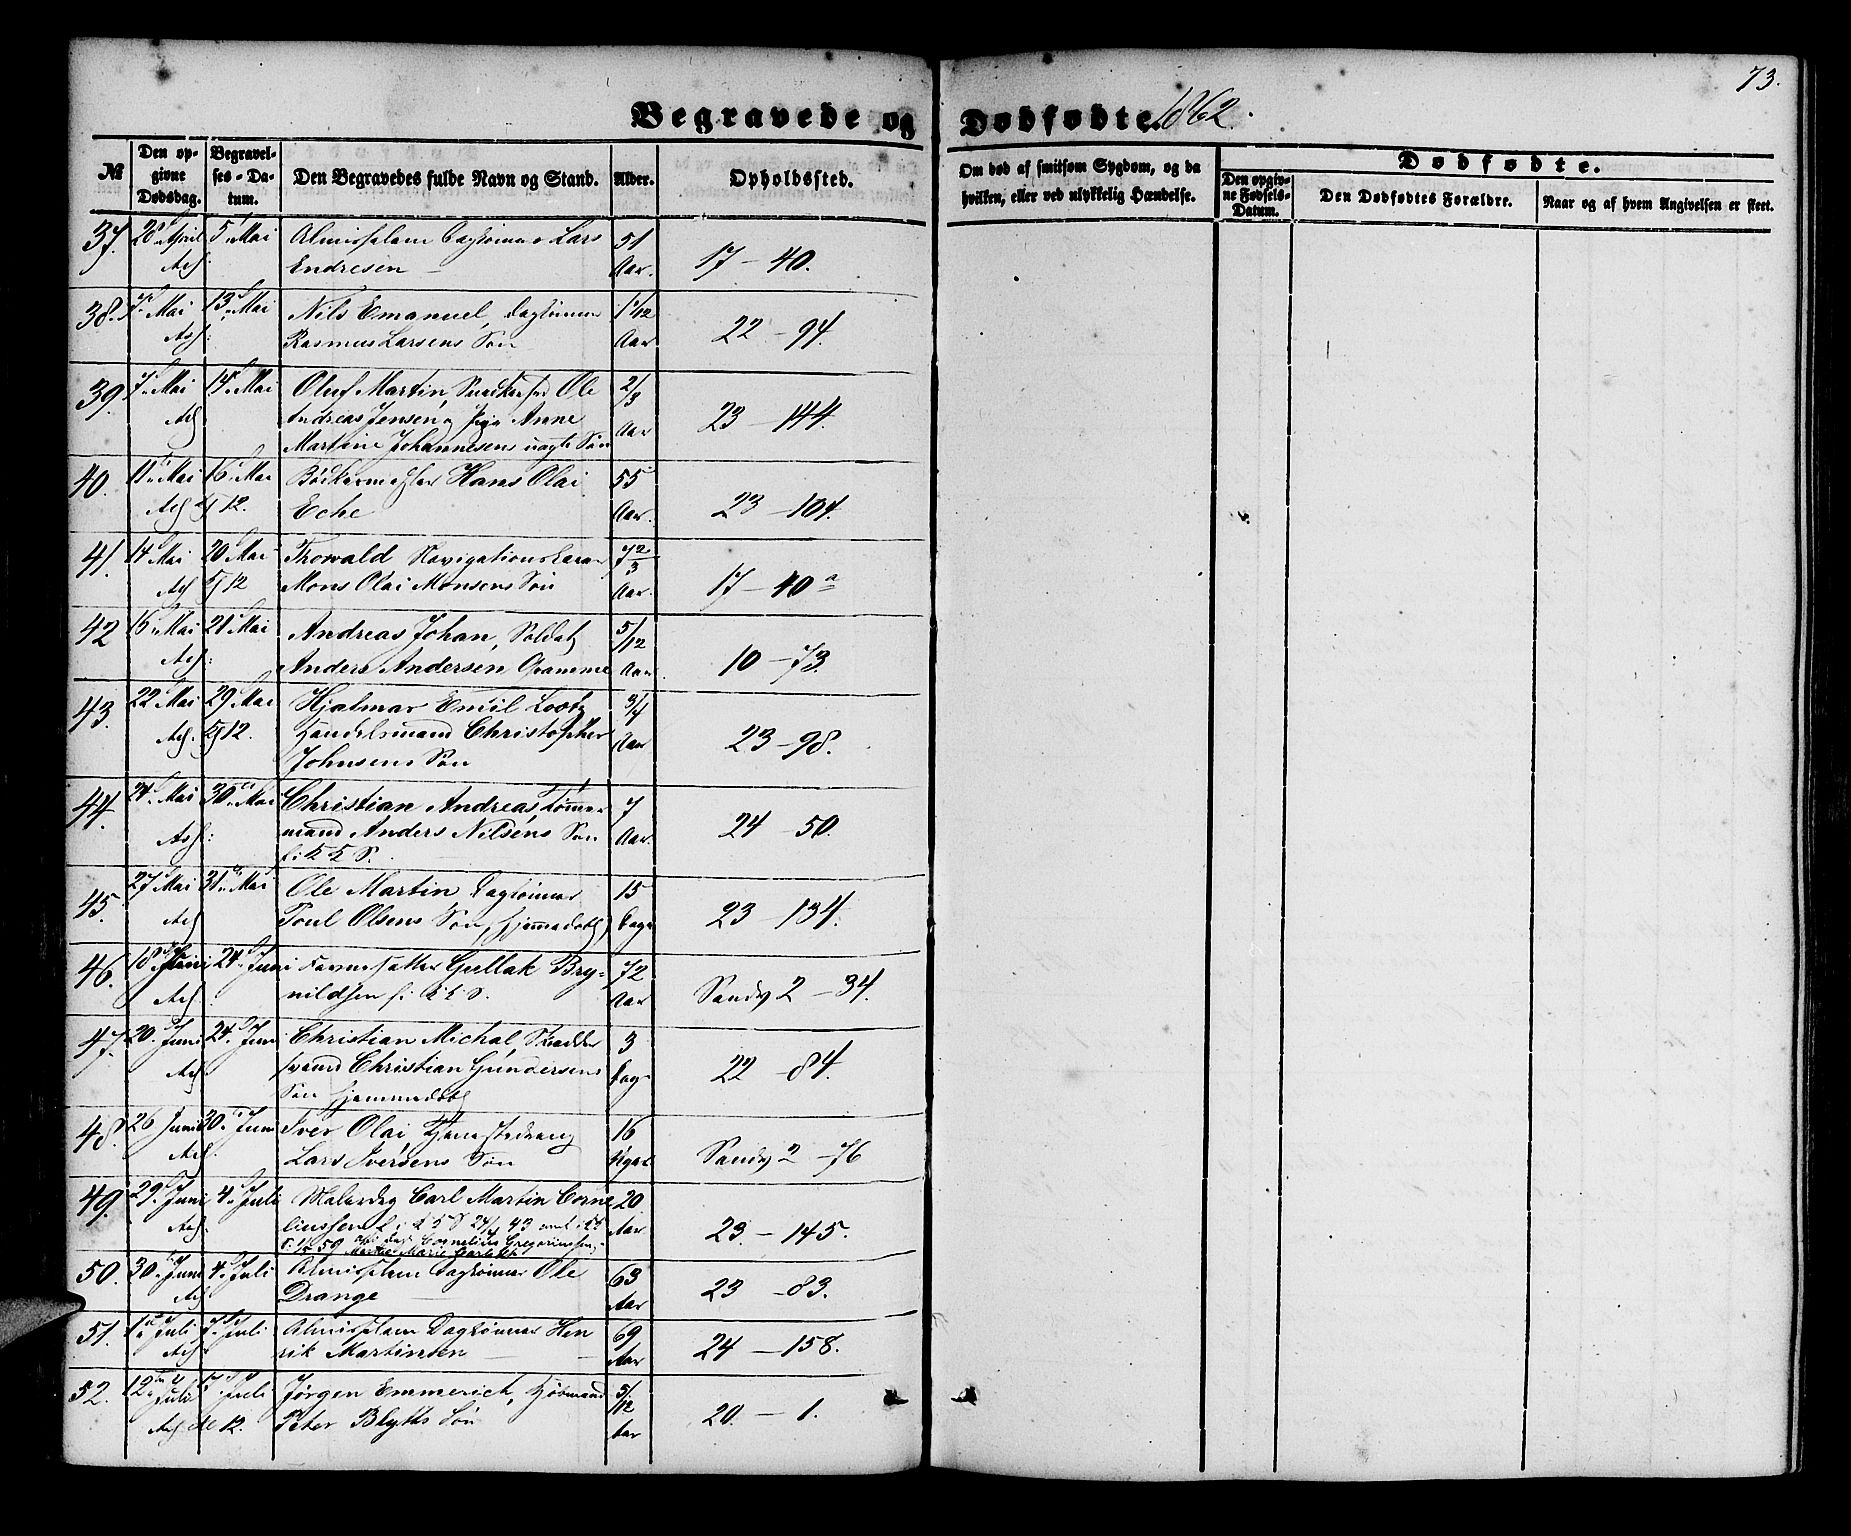 73.
Begravede og Dødfødte. 1862.
№
Den opgivne Dødsdag.
Begravelses-Datum.
Den Begravedes fulde Navn og Stand.
Alder.
Opholdssted.
Om død af smitsom Sygdom, og da hvilken, eller ved ulykkelig Hændelse.
Dødfødte.
Den opgivne Fødsels-Datum.
Den Dødfødtes Forældre.
Naar og af hvem Angivelsen er skeet.
37. 28 April 5 Mai Almisselem Dagkönner Lars 51
Endresen Aar. 17 - 40.
38. 7 Mai 13 Mai Nils Emanuel, Dagkönner 1/12
Rasmus Larsens Søn Aar 22 - 94.
39. 7 Mai 14 Mai Oluf Martin, Ole 2/3
Andreas Jensen og Pige Anne Aar 23 - 144.
Martine Johannesens uægte Søn
40. 11 Mai 16 Mai Bödkermester Hans Olai 55
12. Eche Aar. 23 - 104.
41. 14 Mai 20 Mai Trowald Navigationslærer 7 2/3
12 Mons Olai Monsens Søn Aar. 17 - 40a
42 16 Mai 21 Mai Andreas Johan, Soldat 5/12
Anders Andersen Gramme Aar. 10 - 73.
43. 22 Mai 29 Mai Hjalmar Emil Lootz 3/4
12. Handelsmand Christopher Aar 23 - 98.
Johnsens Søn
44. 24 Mai 30 Mai Christian Andreas, Tømmer 7
mand Anders Nilsens Søn Aar. 24 - 50.
45. 27 Mai 31 Mai Ole Martin Dagkönner 15
Poul Olsens Søn, hjemmedøbt Dage 23 - 134.
46. 18 Juni 24 Juni Gullak Bry- 72
nildsen Aar Sandv 2 - 34.
47. 20. Juni 24. Juni Christian Michal, Skrædder 3
svend Christian Gundersens Dage 22 - 84.
Søn hjemmedøbt
48. 26 Juni 30. Juni Iver Olai, Tjenestedreng 16
Lars Iversens Søn Sandv 2 - 76
49. 29. Juni 4. Juli Malerdrg Carl Martin Corne 20
liussen Aar 23. - 145.
Cornelius Gregoriussen
50. 30. Juni 4. Juli Almisselem Dagkönner Ole 63
Drange Aar 23 - 83.
51. 1 Juli 7. Juli Almisselem Dagkönner Hen 69
rik Martinsen Aar 24 - 158.
52. 12. Juli Juli Jörgen Emmerich, Kjøbmand 5/12
12. Peter Blytts Søn Aar 20. - 1.